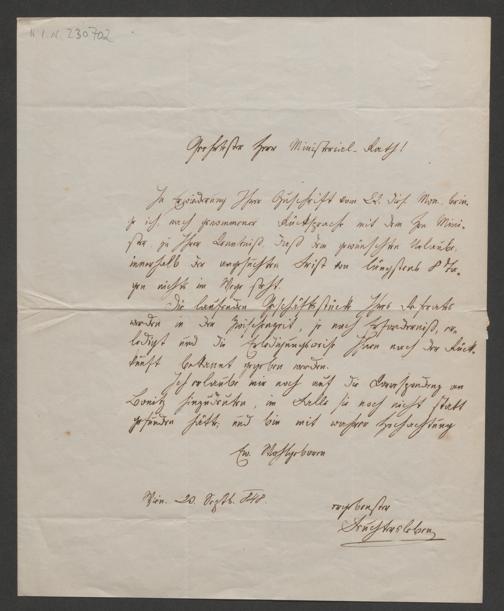 H.I.N. 230702
Geehrtester Herr Ministerial-Rath!
In Erwiederung Ihrer Zuschrift vom 22. dieß. Mon. brin-
ge ich, nach genommener Rücksprache mit dem Hrn Mini-
ster zu Ihrer Kenntniß, daß dem gewünschten Urlaube,
innerhalb der angesuchten Frist von längstens 8 Ta-
gen nichts im Wege steht.
Die laufenden Geschäftsstücke Ihres Referats
werden in der Zwischenzeit, je nach Erforderniß, er-
ledigt und die Erledigungsweise Ihnen nach der Rück-
kunft bekannt gegeben werden.
Ich erlaube mir noch auf die Correspondenz an
Bonitz hinzudeuten, im Falle sie noch nicht statt
gefunden hätte, und bin mit wahrer Hochachtung
Ew. Wohlgeboren
Wien. 20. Septb. 848
ergebenster
Feuchtersleben